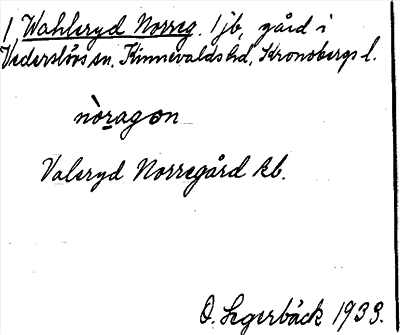 1 Wahleryd Norreg. 1 jb, gård i
Vederslövs sn, Kinnevalds hd, Kronobergs l.
nòragon
Valeryd Norregård kb.
O. Segerbäck 1933.